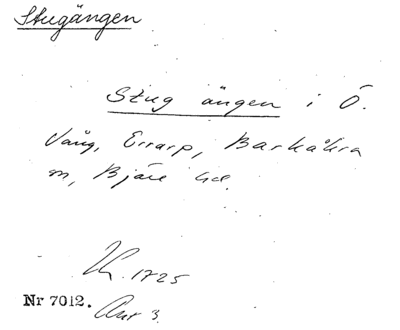 Stugängen
Stug ängen i Ö.
Vång, Errarp, Barkåkra
sn, Bjäre hd.
Lk. 1725
Nr 7012. Akt 3.